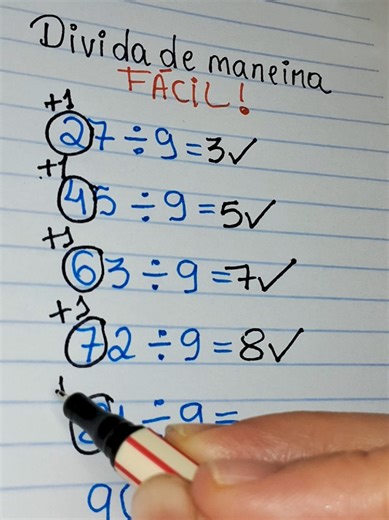 Divida de maneira
FÁCIL!
+1
27 ÷ 9 = 3✓
+1
45 ÷ 9 = 5✓
+1
63 ÷ 9 = 7✓
+1
72 ÷ 9 = 8✓
÷ 9 =
9